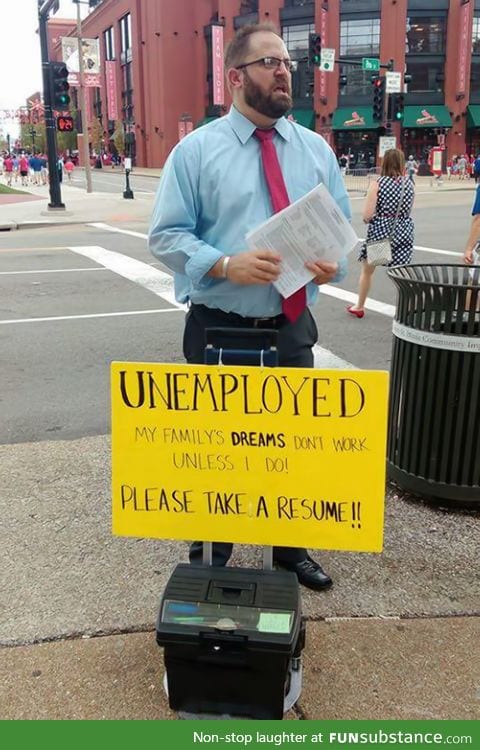 UNEMPLOYED
MY FAMILY'S DREAMS DON'T WORK
UNLESS I DO!
PLEASE TAKE A RESUME!!
Non-stop laughter at FUNsubstance.com